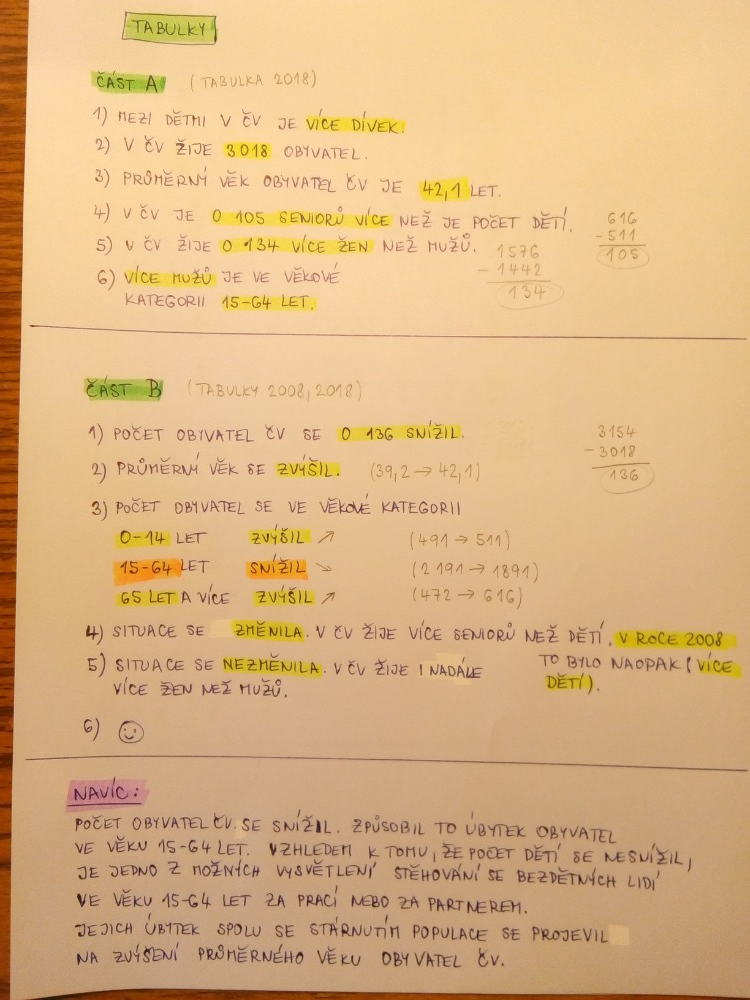 TABULKY
ČÁST A (TABULKA 2018)
1) MEZI DĚTMI V ČV JE VÍCE DÍVEK.
2) V ČV ŽIJE 3018 OBYVATEL.
3) PRŮMĚRNÝ VĚK OBYVATEL ČV JE 42,1 LET.
4) V ČV JE O 105 SENIORŮ VÍCE NEŽ JE POČET DĚTÍ.
616
-511
105
5) V ČV ŽIJE O 134 VÍCE ŽEN NEŽ MUŽŮ.
1576
-1442
134
6) VÍCE MUŽŮ JE VE VĚKOVÉ
KATEGORII 15-64 LET.
ČÁST B (TABULKY 2008, 2018)
1) POČET OBYVATEL ČV SE O 136 SNÍŽIL.
3154
-3018
136
2) PRŮMĚRNÝ VĚK SE ZVÝŠIL. (39,2 → 42,1)
3) POČET OBYVATEL SE VE VĚKOVÉ KATEGORII
0-14 LET ZVÝŠIL ↗ (491 → 511)
15-64 LET SNÍŽIL ↘ (2191 → 1891)
65 LET A VÍCE ZVÝŠIL ↗ (472 → 616)
4) SITUACE SE ZMĚNILA. V ČV ŽIJE VÍCE SENIORŮ NEŽ DĚTÍ. V ROCE 2008
TO BYLO NAOPAK (VÍCE
DĚTÍ).
5) SITUACE SE NEZMĚNILA. V ČV ŽIJE I NADÁLE
VÍCE ŽEN NEŽ MUŽŮ.
6) ☺
NAVÍC:
POČET OBYVATEL ČV SE SNÍŽIL. ZPŮSOBIL TO ÚBYTEK OBYVATEL
VE VĚKU 15-64 LET. VZHLEDEM K TOMU, ŽE POČET DĚTÍ SE NESNÍŽIL,
JE JEDNO Z MOŽNÝCH VYSVĚTLENÍ STĚHOVÁNÍ SE BEZDĚTNÝCH LIDÍ
VE VĚKU 15-64 LET ZA PRACÍ NEBO ZA PARTNEREM.
JEJICH ÚBYTEK SPOLU SE STÁRNUTÍM POPULACE SE PROJEVIL
NA ZVÝŠENÍ PRŮMĚRNÉHO VĚKU OBYVATEL ČV.